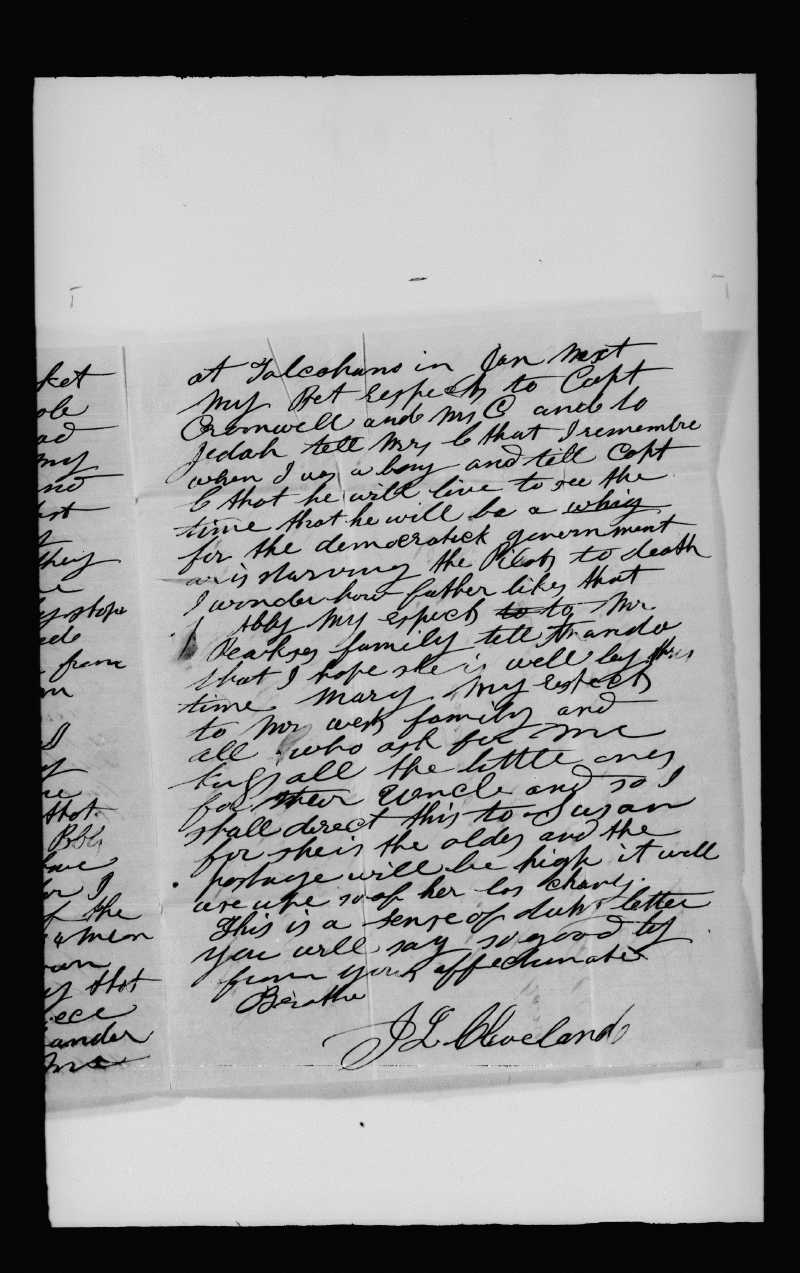 ket
ole
ad
my
and
they
stope
from
I
that
Bbls
have
or I
of the
a mean
that
eece
ander
me
at Talcahano in Jan next
My Bet respects to Capt
Cromwell and Mrs C and to
Jedah tell Mrs C that I remembre
when I was a boy and tell Capt
C that he will live to see the
time that he will be a whig
for the democratick government
is starving the Pilots to death
I wonder how father likes that
Abby My espects to to Mr
family tell
that I hope she is well by this
time Mary My espects
to Mr west family and
all who ask for me
kiss all the little ones
for their Uncle and so I
shall direct this to Susan
for she is the oldes and the
postage will be high it will
use up of her los
This is a sense of letter
you will say so good by
from your affectunate
Berothe
J L Cleveland